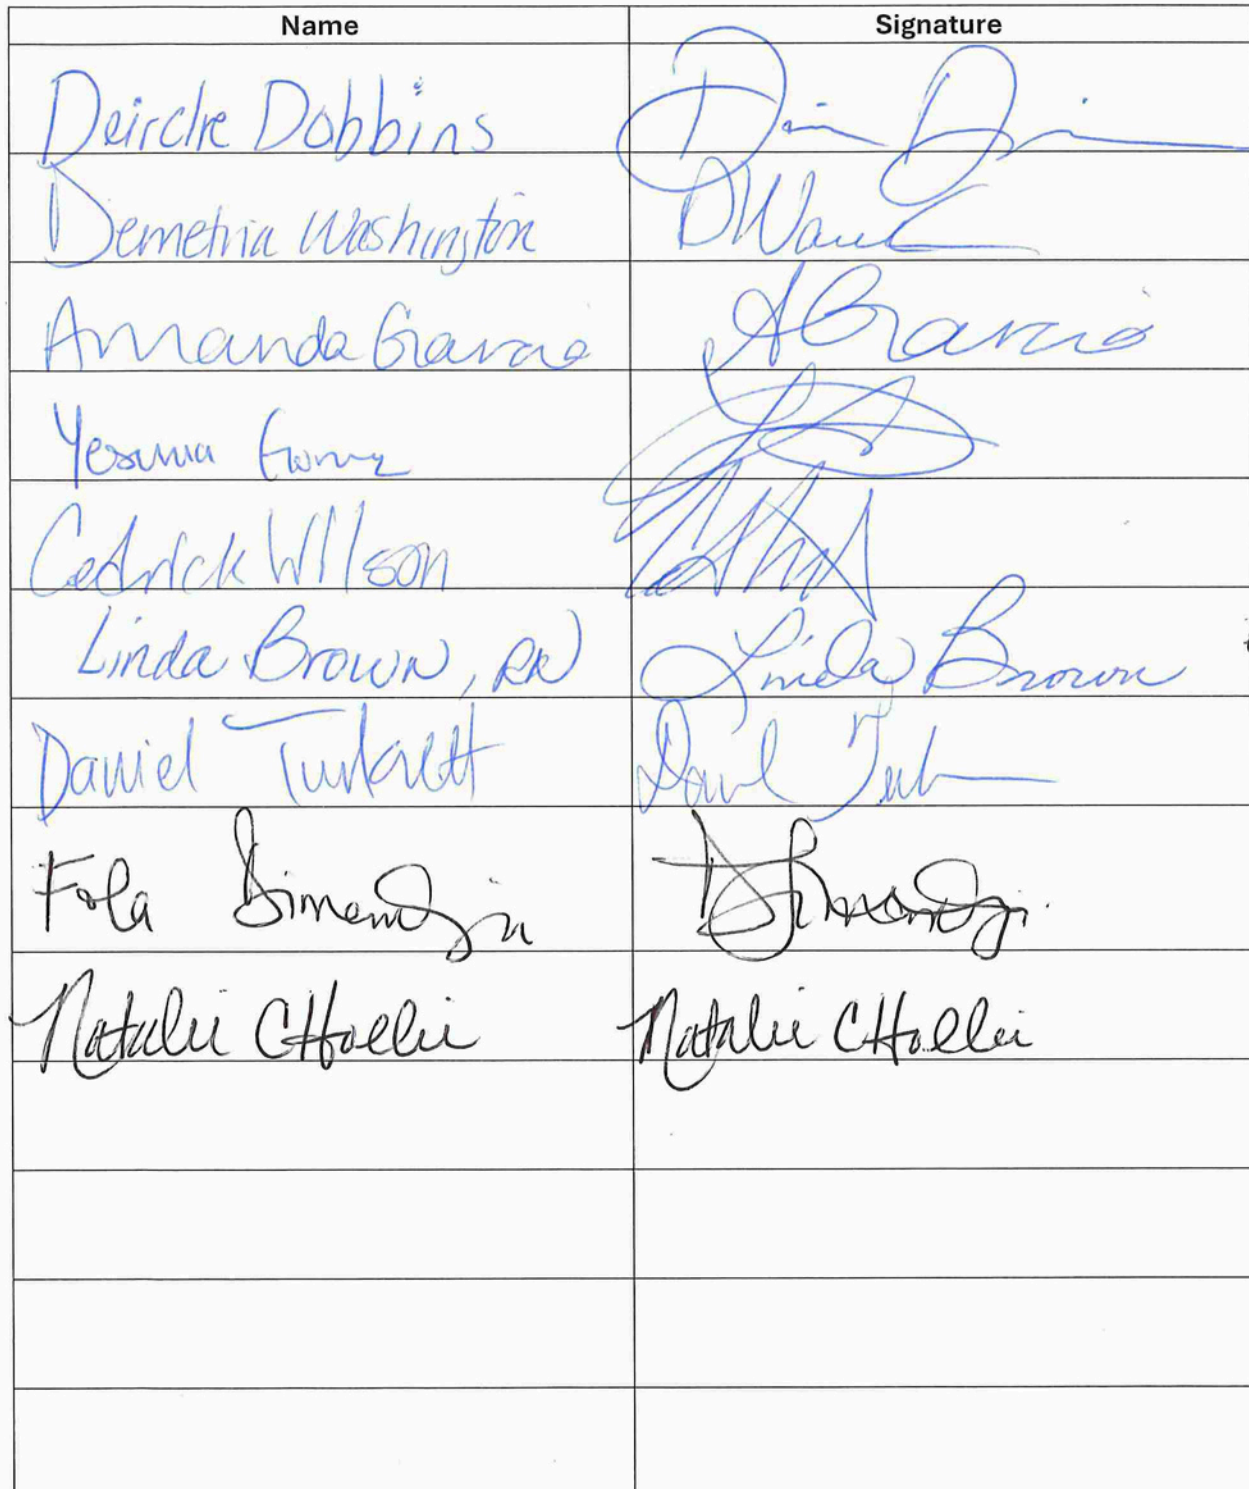 Name Signature
Deirdre Dobbins
Demetria Washington DWa
Amanda Garcia AGarcia
Yesenia Gomez
Cedrick Wilson
Linda Brown, RN Linda Brown
Daniel Daniel
Fola
Natalie CHollie Natalie CHollie